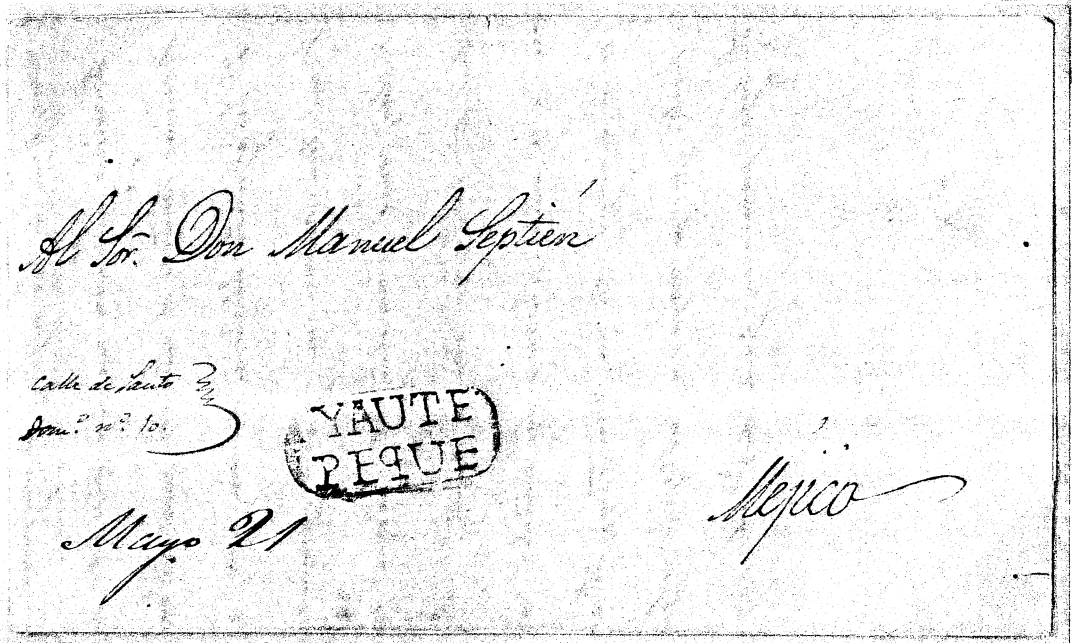 Al Sor. Don Manuel Septién
Calle de Santo
Domo. no. 10
YAUTE
PEQUE
Mayo 21
Mejico